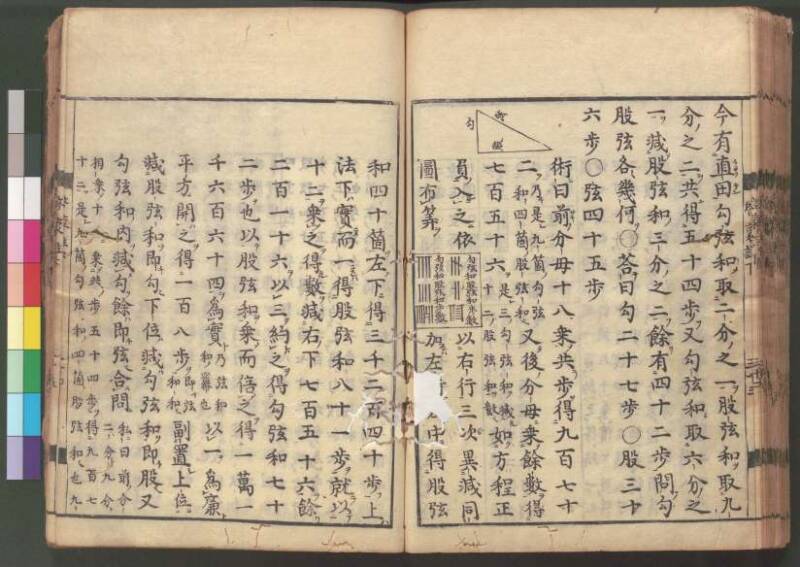 今有直田勾弦和取二分之一股弦和取九
分之二共得五十四歩又勾弦和取六分之
一減股弦和三分之二餘有四十二歩問勾
股弦各幾何〇答曰勾二十七歩〇股三十
六歩〇弦四十五歩
勾
術曰前分母十八乗共歩得九百七十
二乃是九箇勾弦和四箇股弦和又後分母乗餘數得
七百五十六是三勾弦和減十二股弦和數如方程正
員入之依
圖布算
以右行三次異減同
加左行中得股弦
和四十箇左下得三千二百四十歩上
法下實而一得股弦和八十一歩就以
十二乗之得數減右下七百五十六餘
二百一十六以三約之得勾弦和七十
二歩也以股弦和乗而倍之得一萬一
千六百六十四為實乃弦和和羃也以一為廉
平方開之得一百八歩即弦和和副置上位
減股弦和即勾下位減勾弦和即股又
勾弦和内減勾餘即弦合問私曰前分二分九分
相乗十八乗共歩五十四歩得九百七
十二是九箇勾弦和四箇股弦和也九